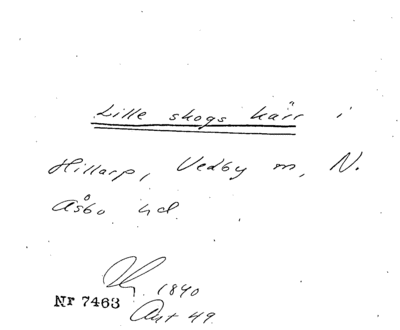 Lille skogs kärr i
Hillarp, Vedby m, N.
Åsbo hd.
1840
Nr 7463
Ant 49.